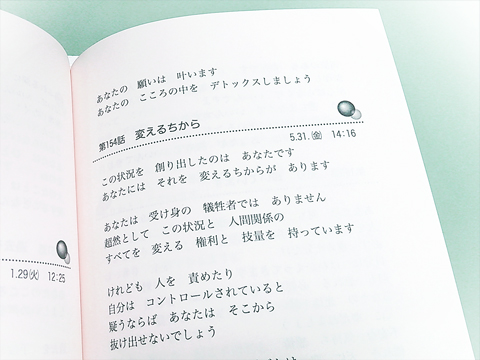 あなたの 願いは 叶います
あなたの こころの中を デトックスしましょう
第154話 変えるちから
5.31.(金) 14:16
この状況を 創り出したのは あなたです
あなたには それを 変えるちからが あります
あなたは 受け身の 犠牲者では ありません
超然として この状況と 人間関係の
すべてを 変える 権利と 技量を 持っています
けれども 人を 責めたり
自分は コントロールされていると
疑うならば あなたは そこから
抜け出せないでしょう
1.29(火) 12:25